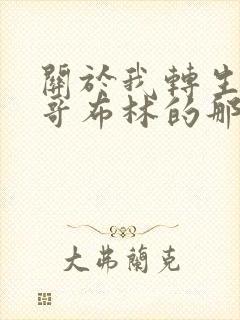 關於我轉生
哥布林的那
大弗蘭克